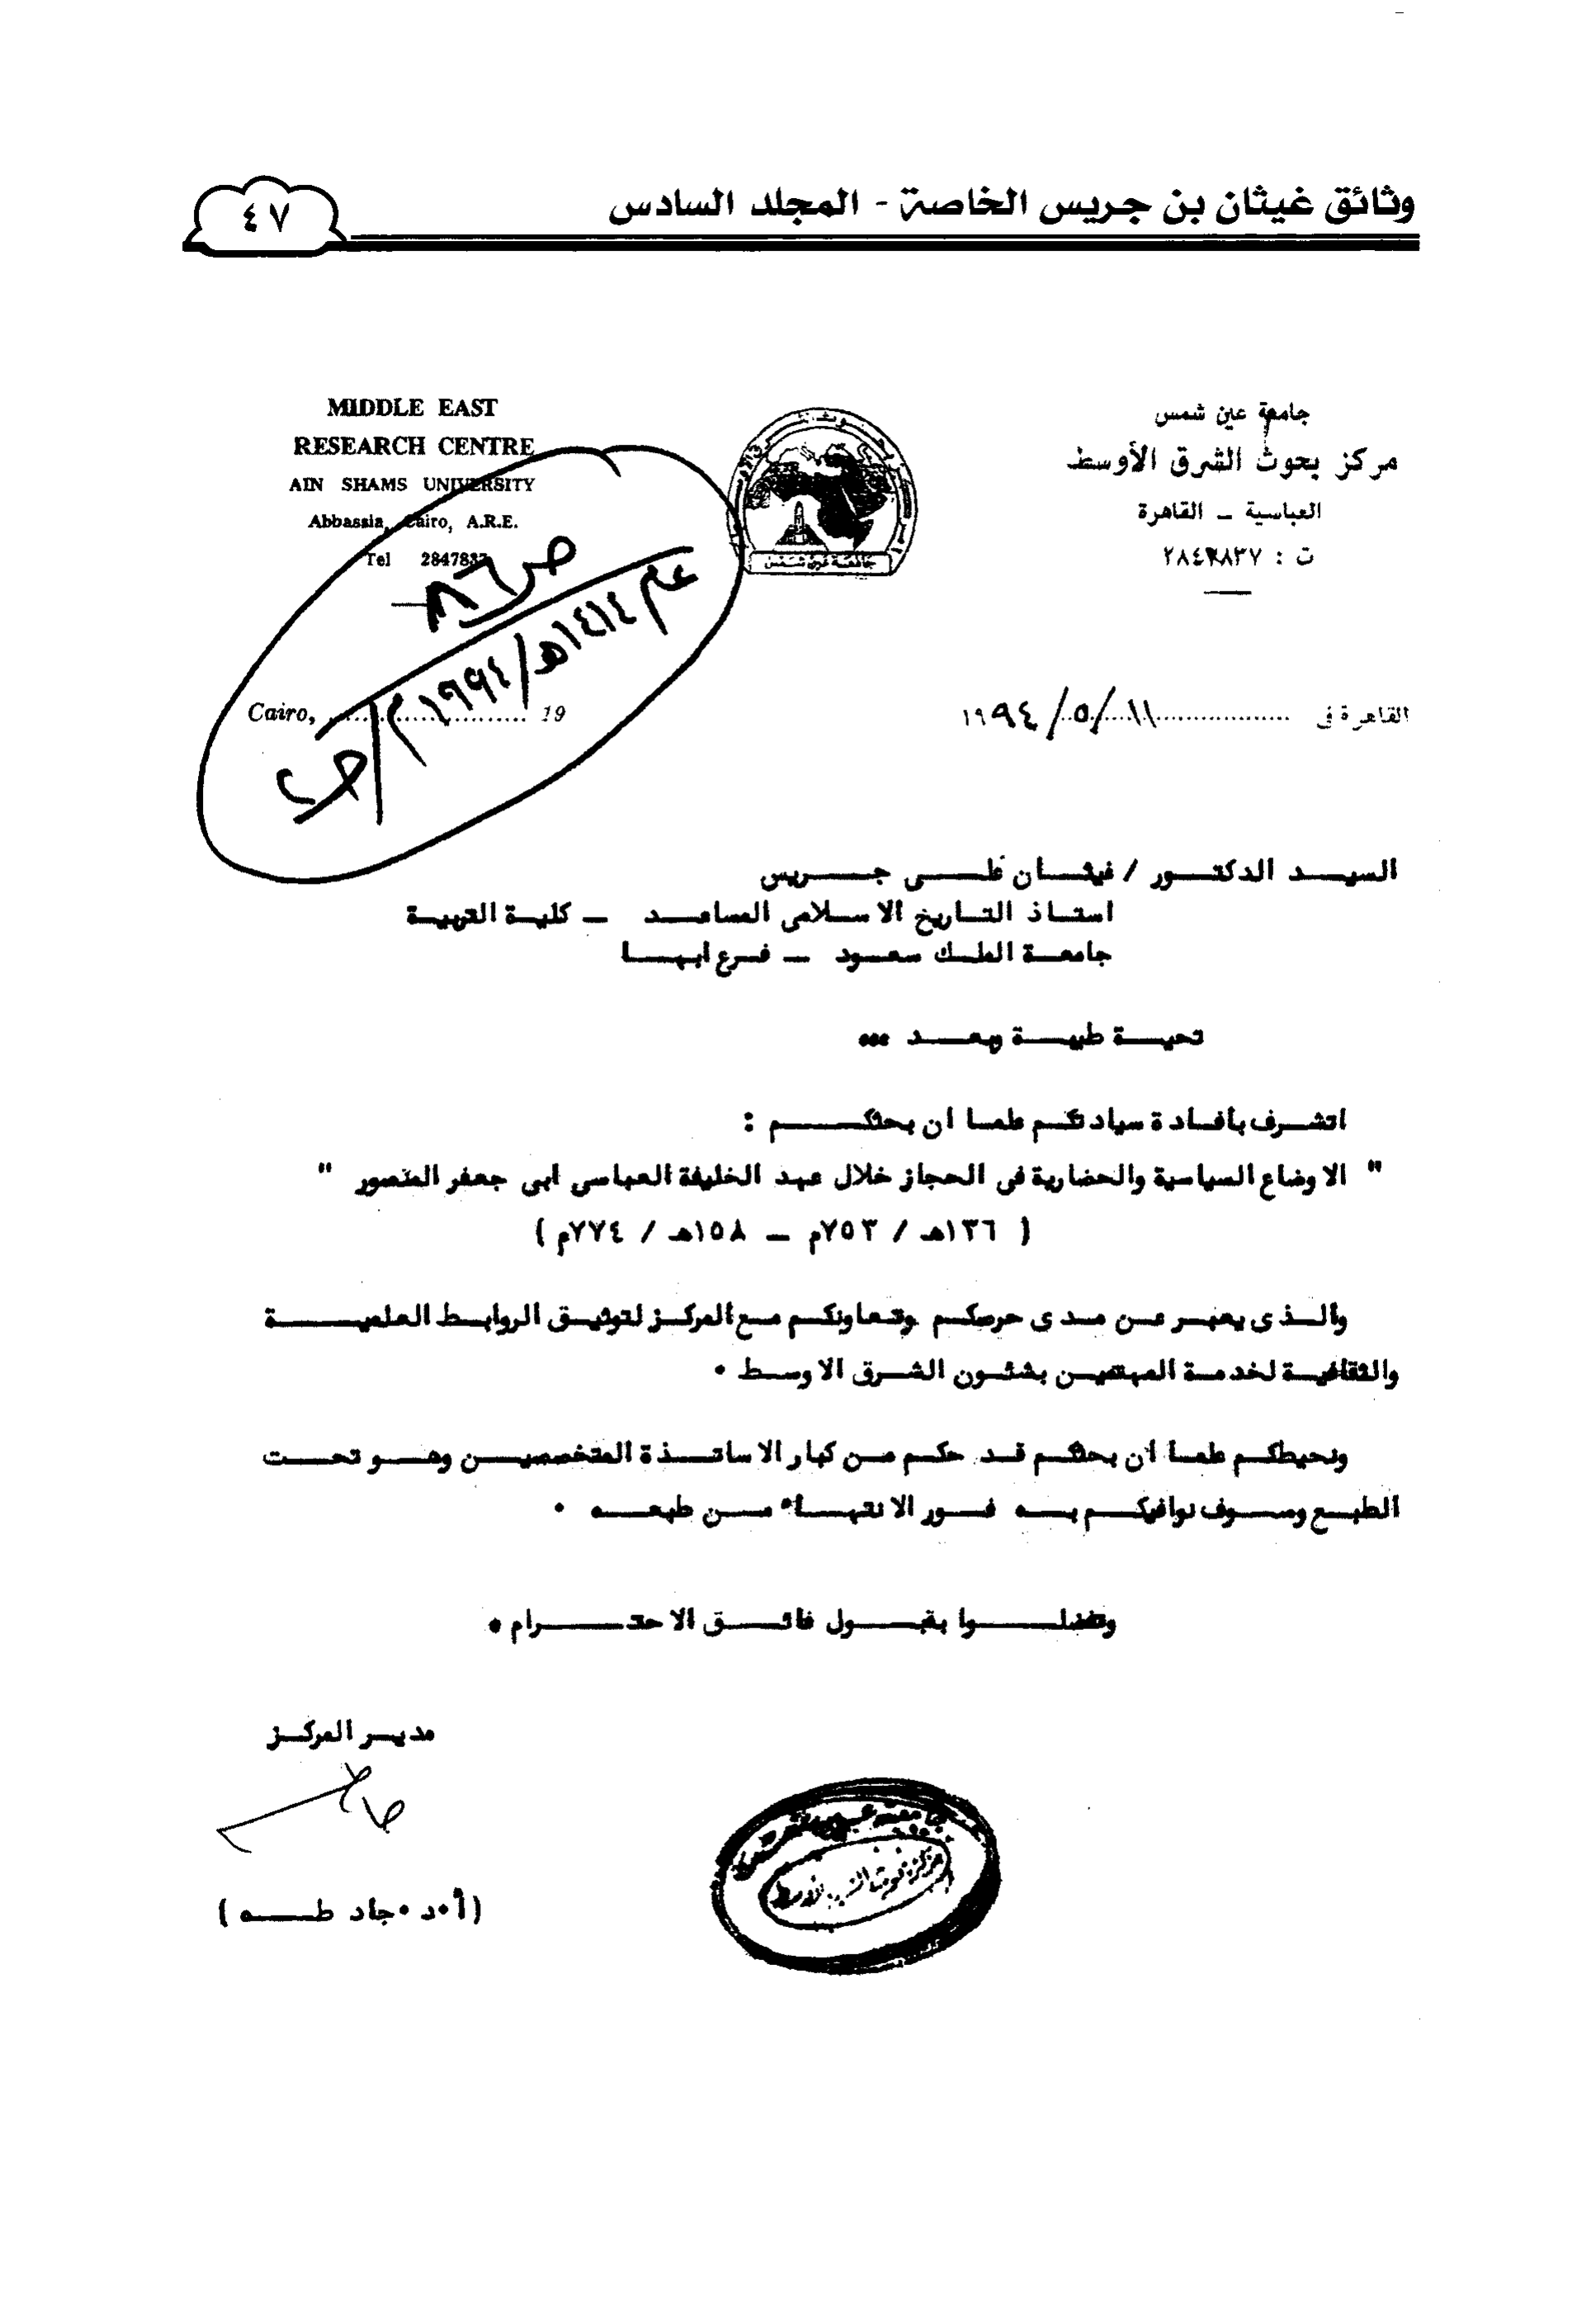 وثائق غيثان بن جريس الخاصة - المجلد السادس
٤٧
جامعة عين شمس
مركز بحوث الشرق الأوسط
العباسية ـ القاهرة
ت : ٢٨٤٧٨٣٧
MIDDLE EAST
RESEARCH CENTRE
AIN SHAMS UNIVERSITY
Abbassia, Cairo, A.R.E.
Tel 2847837
ص ٨٦
عام ١٤١٤هـ/١٩٩٤م
جامعة عين شمس
القاهرة فى ١١/٥/١٩٩٤
Cairo, 19
السيد الدكتور / غيثان على جريس
استاذ التاريخ الاسلامى المساعد ـ كلية التربية
جامعة الملك سعود ـ فرع ابها
تحية طيبة وبعد ...
اتشرف بأفادة سيادتكم علما ان بحثكم :
" الاوضاع السياسية والحضارية فى الحجاز خلال عهد الخليفة العباسى ابى جعفر المنصور "
( ١٣٦هـ / ٧٥٣م ـ ١٥٨هـ / ٧٧٤م )
والذى يعبر عن مدى حرصكم وتعاونكم مع المركز لتوثيق الروابط العلمية
والثقافية لخدمة المهتمين بشئون الشرق الاوسط .
ونحيطكم علما ان بحثكم قد حكم من كبار الاساتذة المتخصصين وهو تحت
الطبع وسوف نوافيكم به فور الانتهاء من طبعه .
وتفضلوا بقبول فائق الاحترام .
مدير المركز
(أ.د.جاد طه )
مركز بحوث الشرق الأوسط